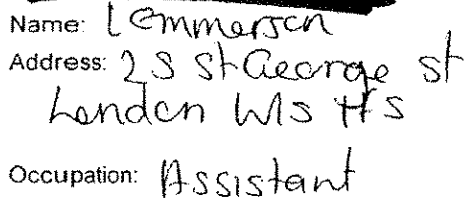 Name: L Emmerson
Address: 25 St George St
London W1S HS
Occupation: Assistant